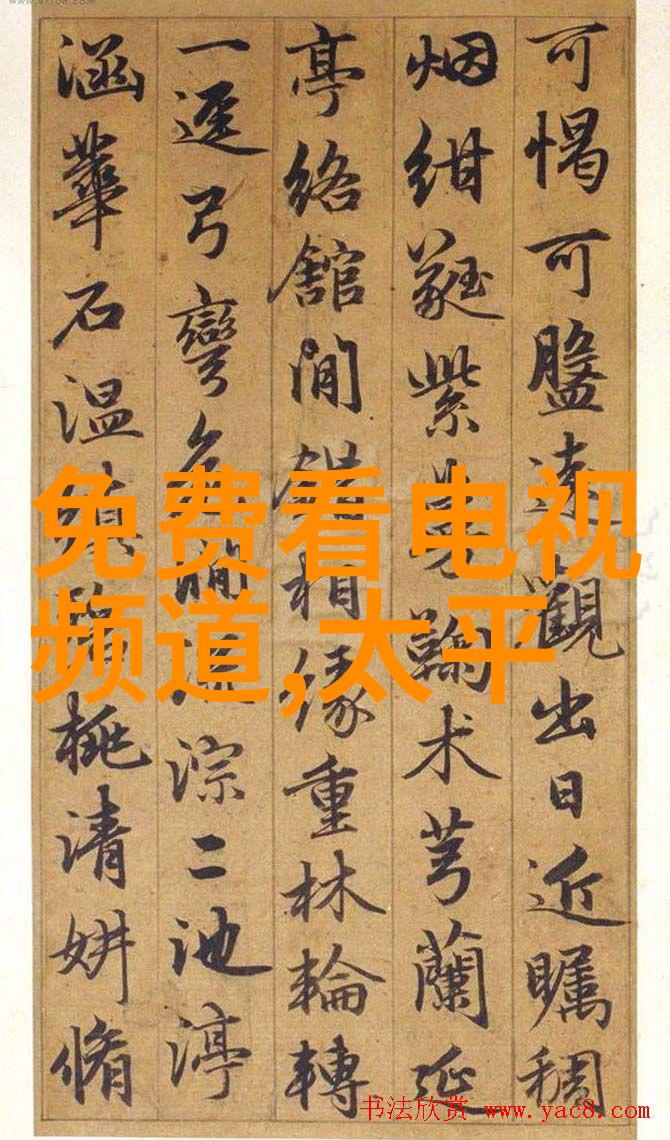 可愒可盤遠觀出日近矚稠
烟紺蕤紫术芎蘭延
亭絡館間錯相緣重林輪轉
一逕弓彎間淙二池渟
涵華石温桃清妍脩
免费看电视
频道,太平
书法欣赏 www.yac8.com